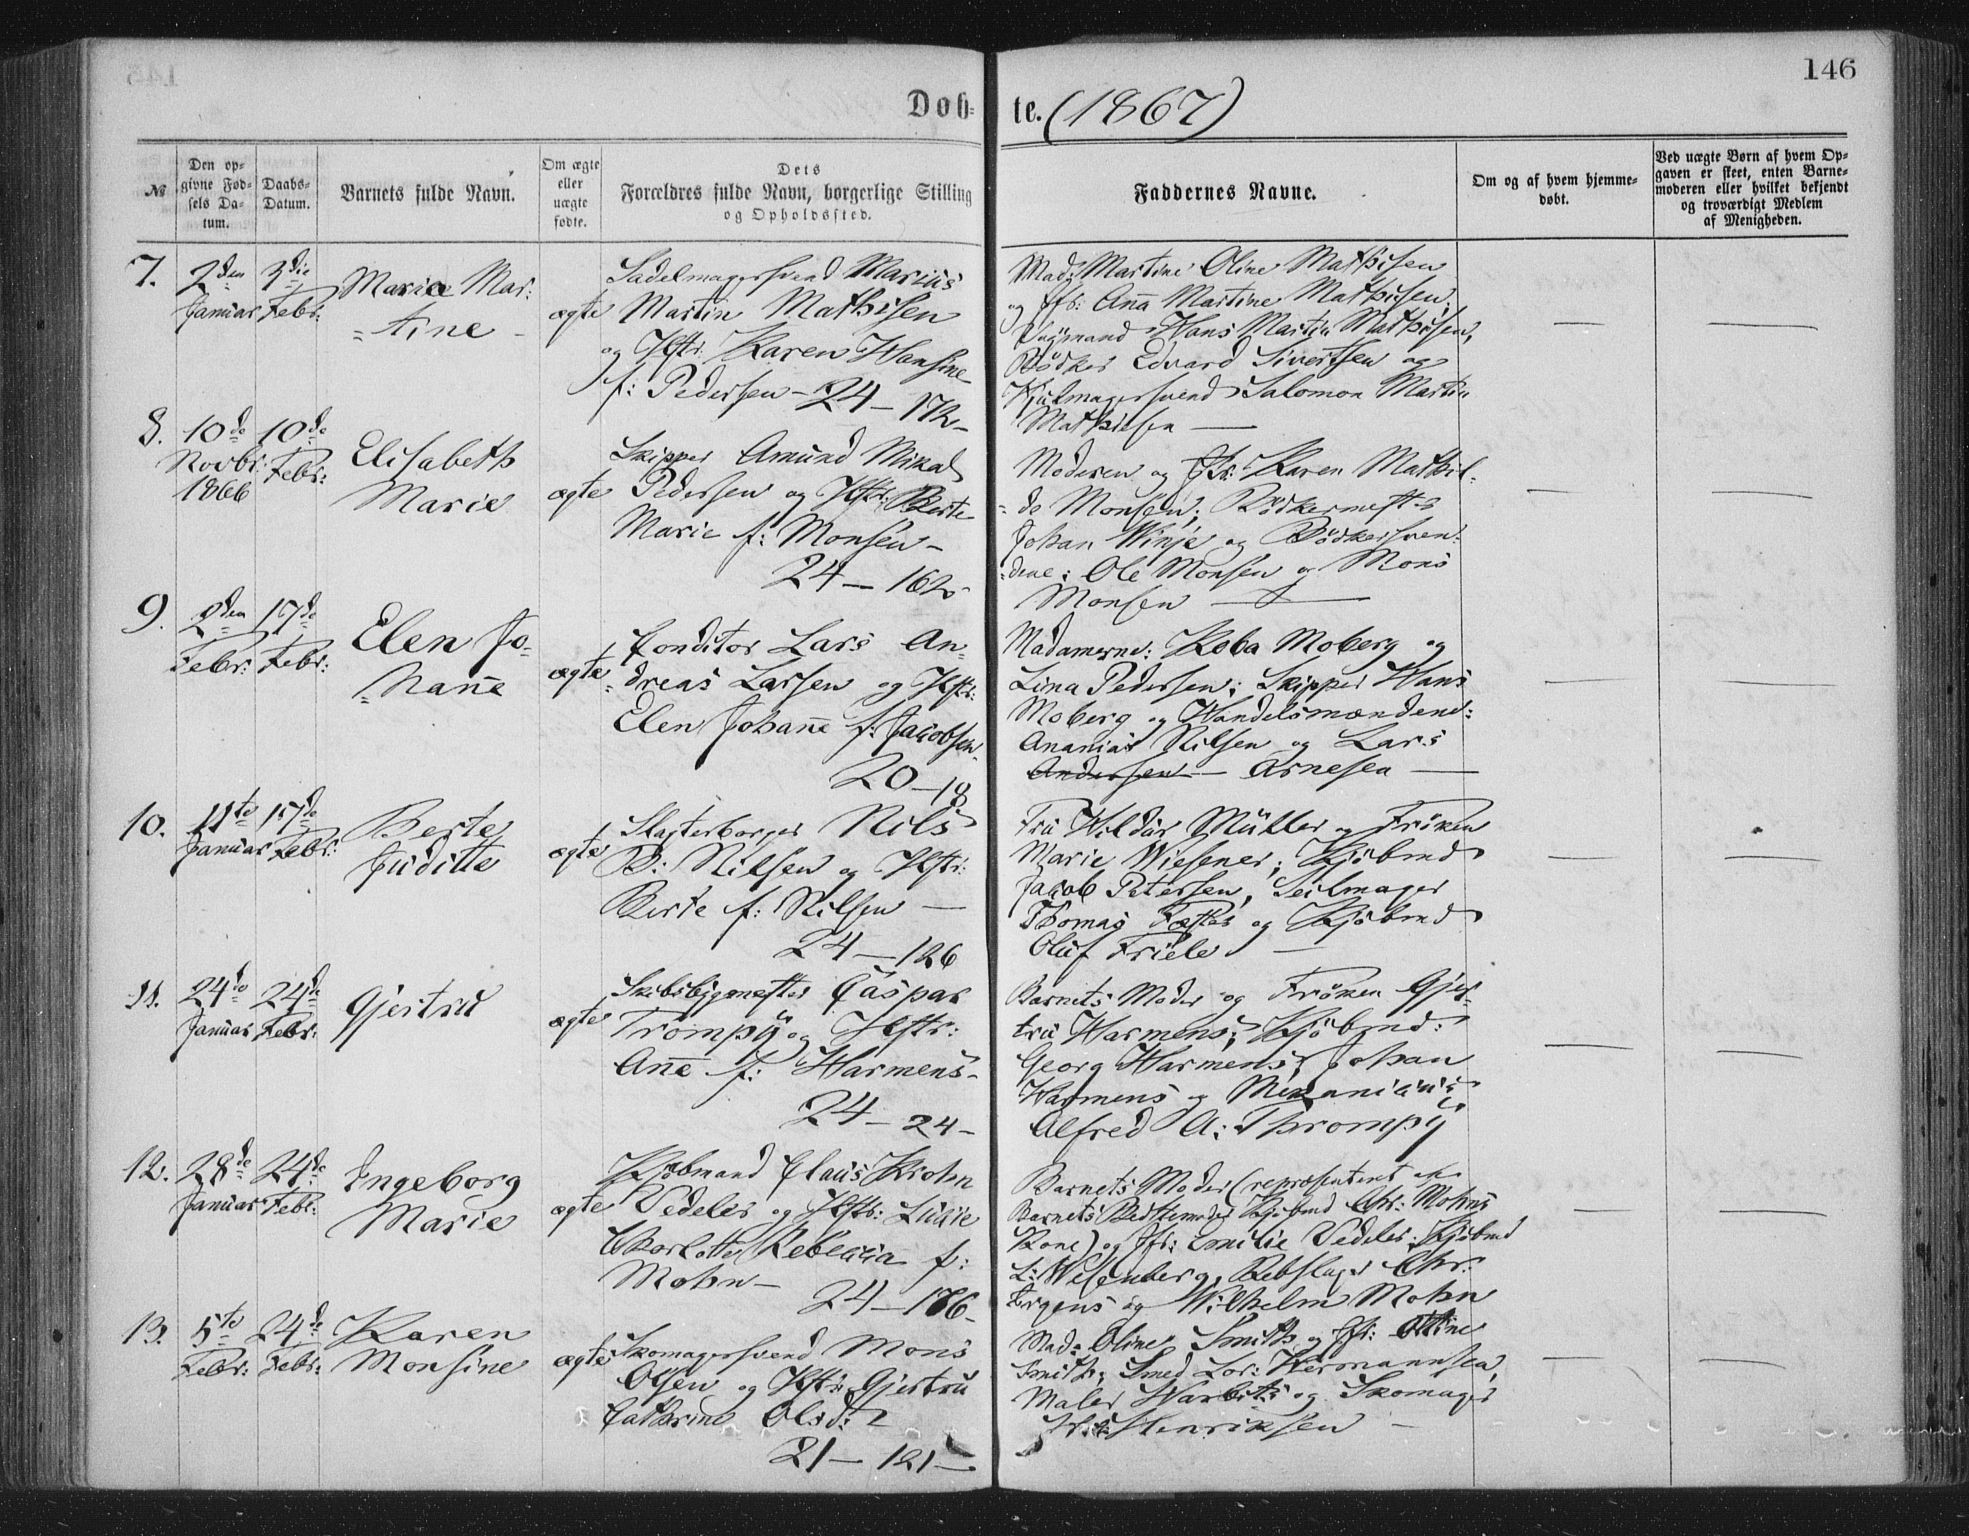 146
Døb- te. (1867)
№
Den op-
givne Fød-
sels Da-
tum.
Daabs-
Datum.
Barnets fulde Navn.
Om ægte
eller
uægte
fødte.
Dets
Forældres fulde Navn, borgerlige Stilling
og Opholdssted.
Faddernes Navne.
Om og af hvem hjemme-
døbt.
Ved uægte Børn af hvem Op-
gaven er skeet, enten Barne-
moderen eller hvilket bekjendt
og troværdigt Medlem
af Menigheden.
7.
2den
Januar
3die
Febr:
Marie Mar:
tine
ægte
Sadelmagersvend Marius
Martin Mathisen
og Hstr: Karen Hansine
f: Pedersen - 24 - 172
Mad: Martine Oline Mathisen
og Jfr: Anna Martine Mathisen;
Hans Martin Mathisen,
Bødker Edvard Sivertsen og
Hjulmagersvend Salomon Martin
Mathiesen
8.
10de
Novbr:
1866
10de
Febr:
Elisabeth
Marie
ægte
Skipper Amund Mikal
Pedersen og Hstr: Berte
Marie f: Monsen -
24 - 162
Moderen og Jfr: Karen Mathil-
de Monsen; Bødkermester
Johan Winje og Bødkersven-
dene: Ole Monsen og Mons
Monsen
9.
2den
Febr:
17de
Febr:
Elen Jo-
hanne
ægte
Conditor Lars An-
dreas Larsen og Hstr:
Elen Johanne f: Jacobsen
20 - 18
Madamerne: Koba Moberg og
Lina Pedersen; Skipper Hans
Moberg og Handelsmændene:
Ananias Nilsen og Lars
Andersen Arnesen
10.
11te
Januar
17de
Febr:
Berte
Juditte
ægte
Slagterborger Nils
B: Nilsen og Hstr:
Berte f: Nilsen
24 - 126
Fru Müller og Frøken
Marie Wiesener; Kjøbmd
Jacob Petersen, Seilmager
Thomas Fæster og Kjøbmd
Oluf Friele
11.
24de
Januar
24de
Febr:
Gjertru
ægte
Skibsbygmester Caspar
Trompÿ og Hstr:
Anne f: Harmens
24 - 24
Barnets Moder og Frøken Gjer-
tru Harmens; Kjøbmd:
Georg Harmens, Johan
Harmens og Mekanicus
Alfred A: Thrompÿ
12.
28de
Januar
24de
Febr:
Ingeborg
Marie
ægte
Kjøbmand Claus Krohn
Vedeler og Hstr: Lucie
Charlotte Rebecca f:
Mohn
24 - 186
Barnets Moder (repræsentert af
Barnets Bedstemoder Kjøbmd Chr: Mohns
Kone) og Jfr: Emilie Vedeler; Kjøbmd
L: Wesenberg, Rebslager Chr:
Irgens og Wilhelm Mohn
13.
5te
Febr:
24de
Febr:
Karen
Monsine
ægte
Skomagersvend Mons
Olsen og Hstr: Gjertru
Cathrine Olsdr
21 - 121
Mad: Oline Smith og Jfr: Ottine
Smith; Smed Lor: Hermannsen,
Maler Harbitz og Skomager
Henriksen